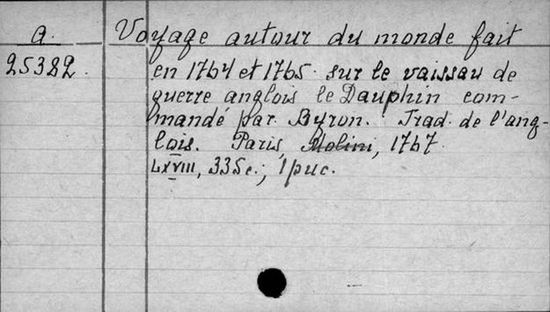 a. Voyage autour du monde fait
25382. en 1764 et 1765 sur le vaissau de
guerre anglois le Dauphin com-
mandé par Byron. Trad. de l'ang-
lois. Paris, Molini, 1767.
LXVIII, 335c.; 1 рис.